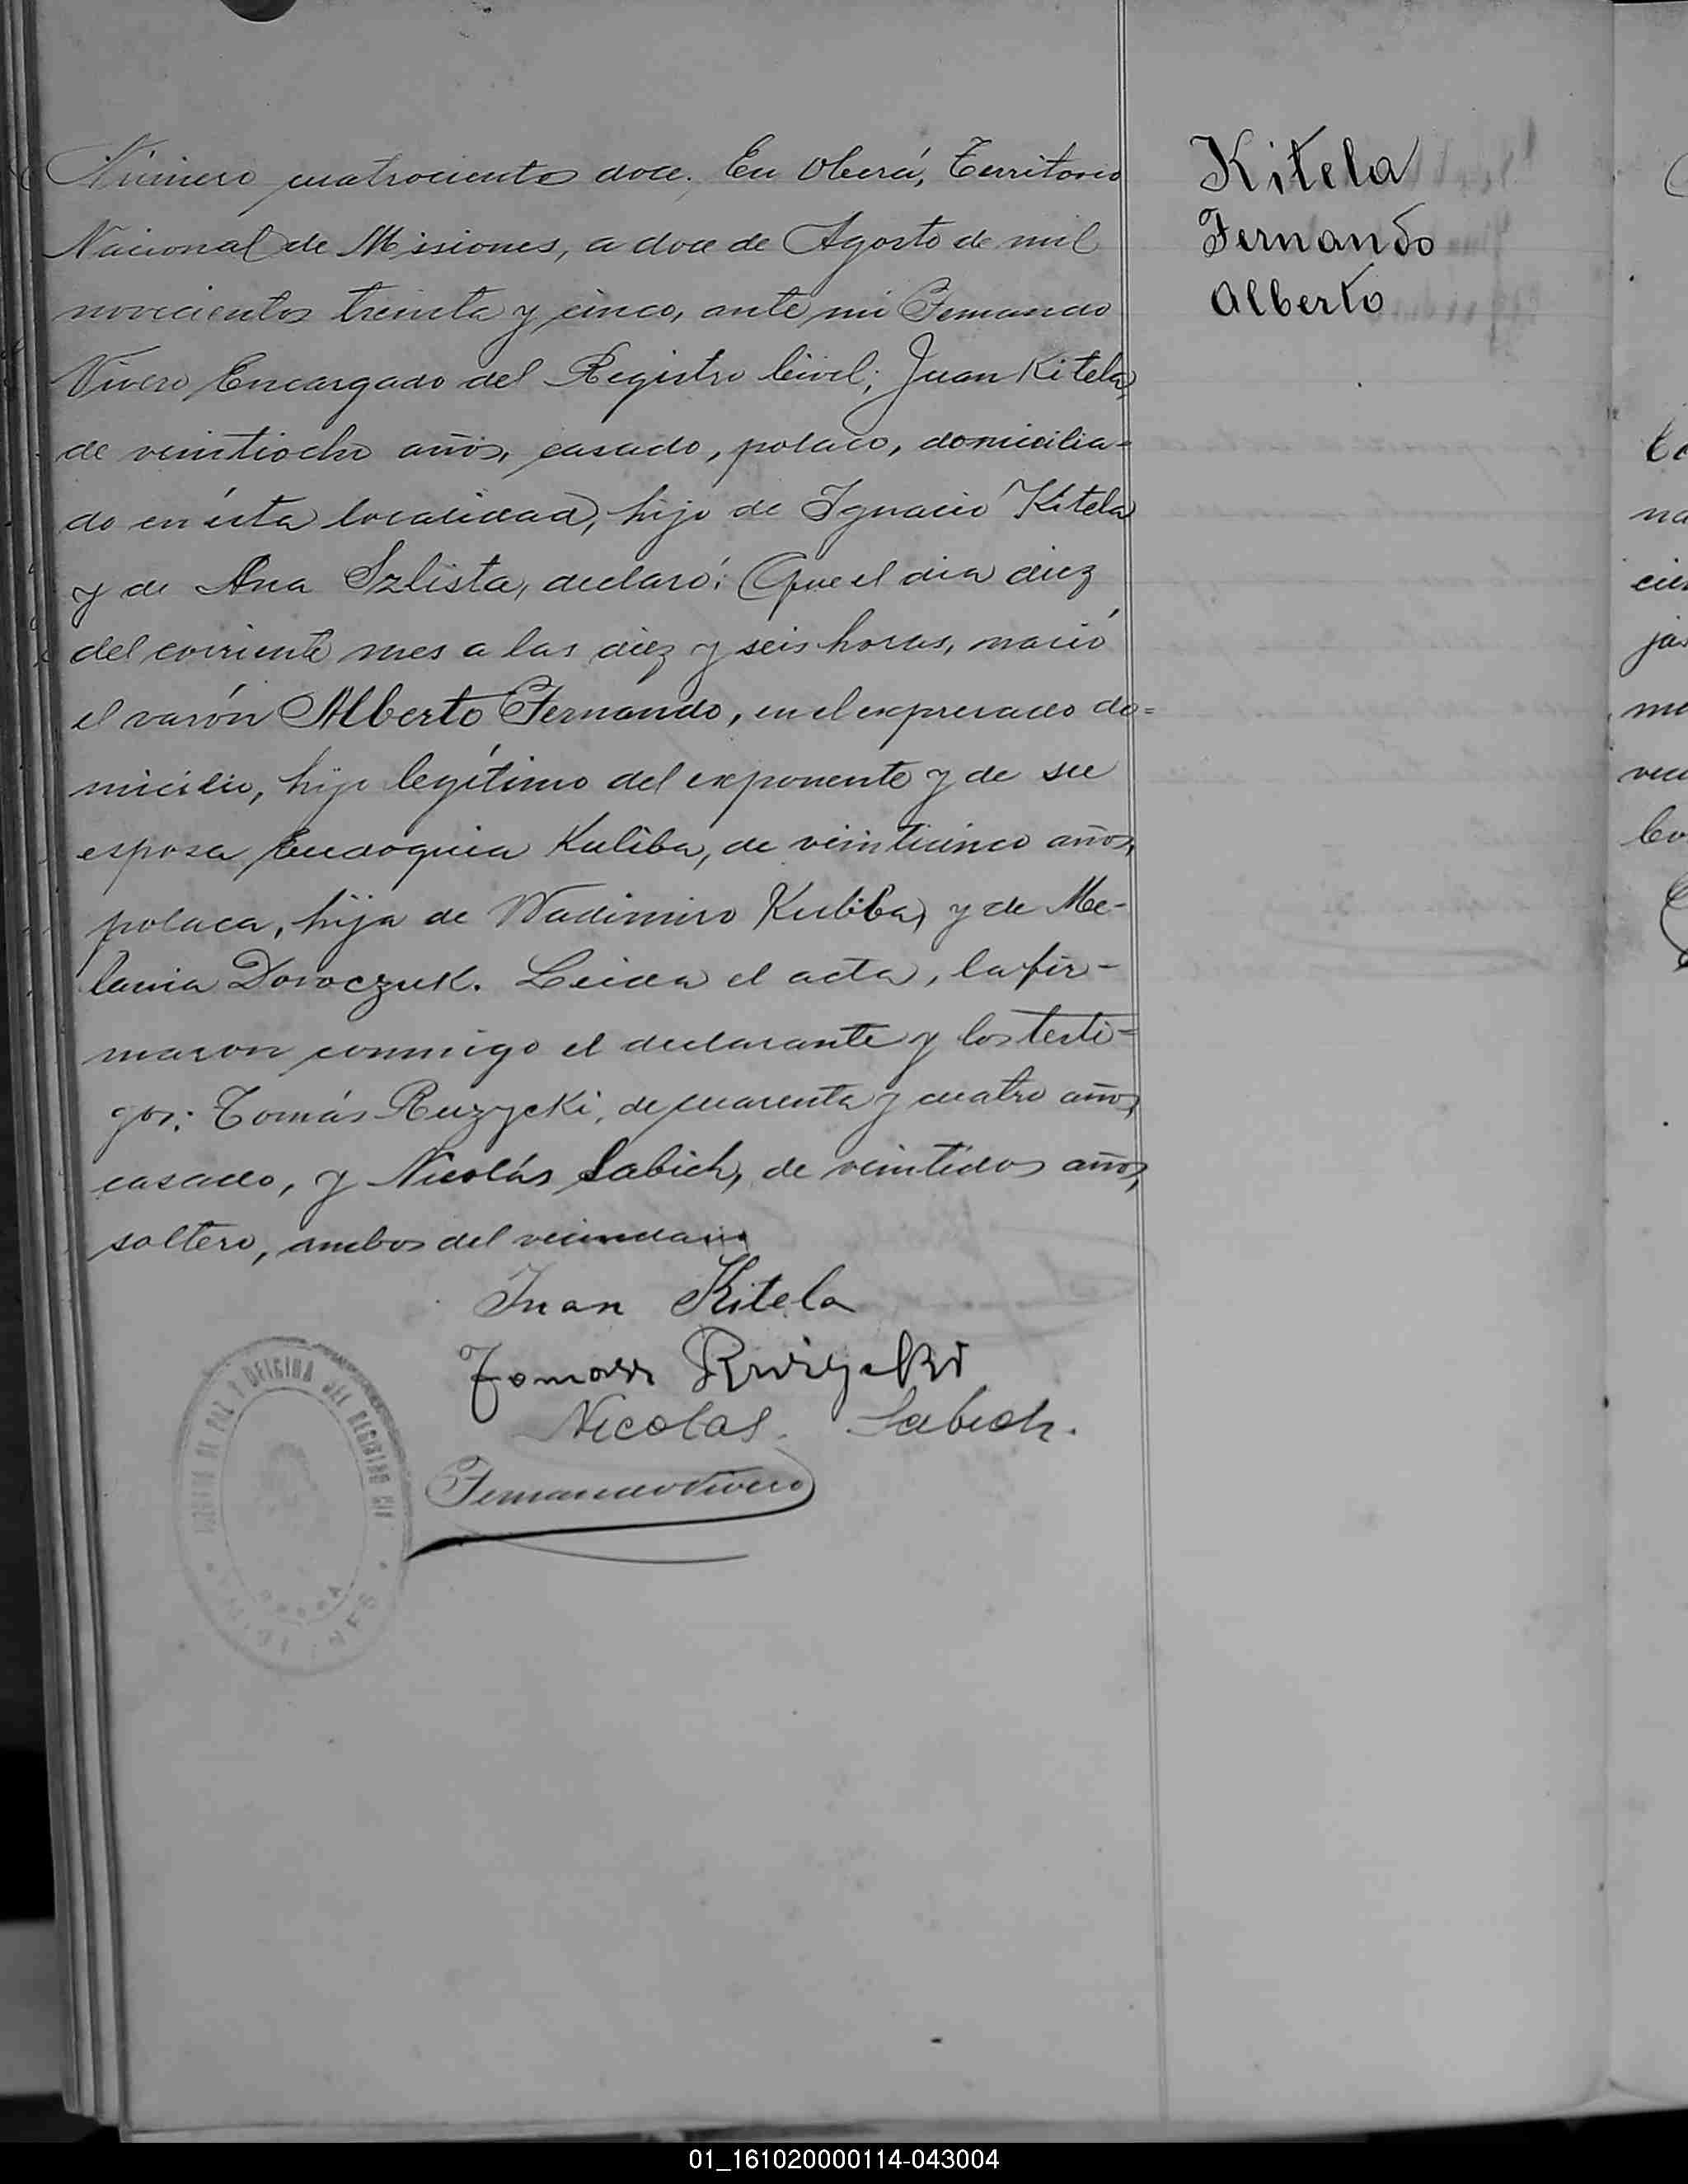 Número cuatrociento doce. En Oberá, Territorio
Nacional de Misiones, a doce de Agosto de mil
novecientos treinta y cinco, ante mi Fernando
Vivero Encargado del Registro Civil; Juan Kitela,
de veintiocho años, casado, polaco, domicilia=
do en ésta localidad, hijo de Ignacio Kitela
y de Ana Szlista, declaró: Que el día diez
del corriente mes a las diez y seis horas, nació
el varón Alberto Fernando, en el expresado do=
micilio, hijo legítimo del exponente y de su
esposa Eudoquia Kuliba, de veinticinco años,
polaca, hija de Wadimiro Kuliba, y de Me-
lania Doroczuk. Leida el acta, la fir-
maron conmigo el declarante y los testi=
gos: Tomás Ruzycki, de cuarenta y cuatro años,
casado, y Nicolás Sabich, de veintidos años,
soltero, ambos del vecindario
Juan Kitela
Tomasz
Nicolas Sabich.
Fernando Vivero
DE PAZ Y OFICINA DEL REGISTRO
Kitela
Fernando
Alberto
01_161020000114-043004